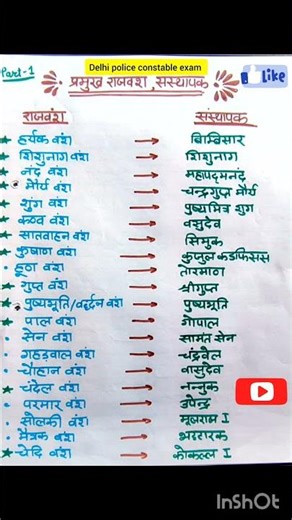 Delhi police constable exam
Part-1
प्रमुख राजवंश, संस्थापक
Like
राजवंश संस्थापक
हर्यक वंश → बिम्बिसार
शिशुनाग वंश → शिशुनाग
नंद वंश → महापद्मनंद
मौर्य वंश → चन्द्रगुप्त मौर्य
शुंग वंश → पुष्यमित्र शुंग
कण्व वंश → वसुदेव
सातवाहन वंश → सिमुक
कुषाण वंश → कुजुल कडफिसस
हूण वंश → तोरमाण
गुप्त वंश → श्रीगुप्त
पुष्यभूति/वर्द्धन वंश → पुष्यभूति
पाल वंश → गोपाल
सेन वंश → सामंत सेन
गहड़वाल वंश → चंद्रदेव
चौहान वंश → वासुदेव
चंदेल वंश → नन्नुक
परमार वंश → उपेन्द्र
सोलंकी वंश → मूलराज I
मैत्रक वंश → भट्टारक
चेदि वंश → कोकल्ल I
InShOt